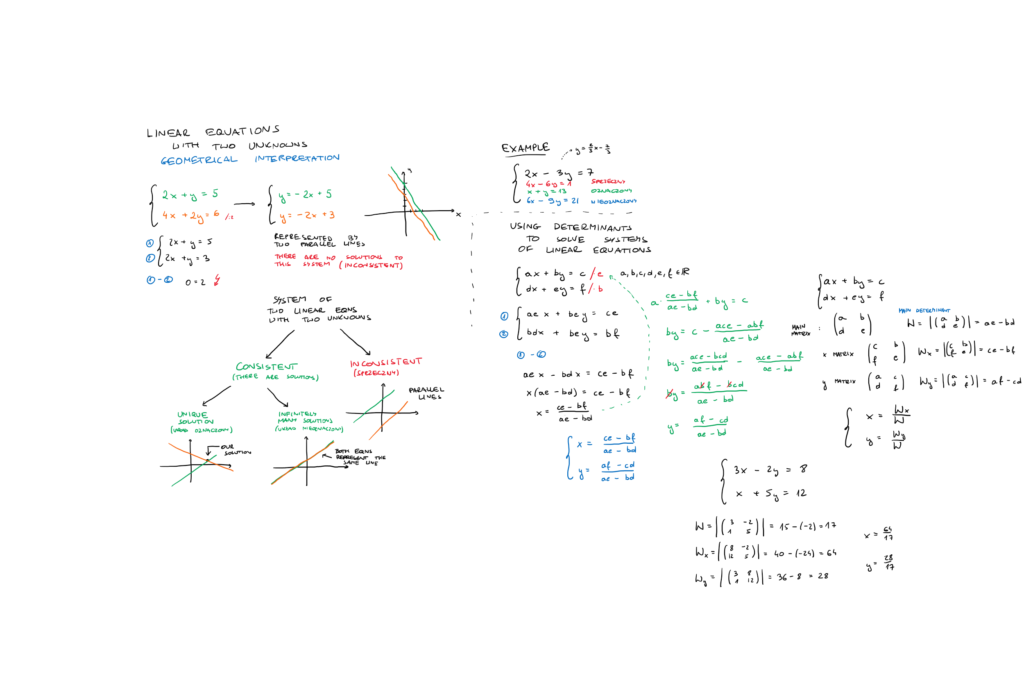 LINEAR EQUATIONS
WITH TWO UNKNOWNS
GEOMETRICAL INTERPRETATION
2x + y = 5
4x + 2y = 6 /:2
y = -2x + 5
y = -2x + 3
x
① 2x + y = 5
② 2x + y = 3
① - ② 0 = 2
REPRESENTED BY
TWO PARALLEL LINES
THERE ARE NO SOLUTIONS TO
THIS SYSTEM (INCONSISTENT)
SYSTEM OF
TWO LINEAR EQNS
WITH TWO UNKNOWNS
CONSISTENT
(THERE ARE SOLUTION)
INCONSISTENT
(SPRZECZNY)
PARALLEL
LINES
UNIQUE
SOLUTION
(UKŁAD OZNACZONY)
OUR
SOLUTION
INFINITELY
MANY SOLUTIONS
(UKŁAD NIEOZNACZONY)
BOTH EQNS
REPRESENT THE
SAME LINE
EXAMPLE
y = 2/3 x - 7/3
2x - 3y = 7
4x - 6y = 1 SPRZECZNY
x + y = 13 OZNACZONY
6x - 9y = 21 NIEOZNACZONY
USING DETERMINANTS
TO SOLVE SYSTEMS
OF LINEAR EQUATIONS
ax + by = c /·e a, b, c, d, e, f ∈ ℝ
dx + ey = f /·b
① aex + bey = ce
② bdx + bey = bf
① - ②
aex - bdx = ce - bf
x(ae - bd) = ce - bf
x = (ce - bf)/(ae - bd)
x = (ce - bf)/(ae - bd)
y = (af - cd)/(ae - bd)
a · (ce - bf)/(ae - bd) + by = c
by = c - (ace - abf)/(ae - bd)
by = (ace - bcd)/(ae - bd) - (ace - abf)/(ae - bd)
by = (abf - bcd)/(ae - bd)
y = (af - cd)/(ae - bd)
ax + by = c
dx + ey = f
MAIN MATRIX : (a b d e)
MAIN DETERMINENT
W = |(a b d e)| = ae - bd
x MATRIX (c b f e) Wx = |(c b f e)| = ce - bf
y MATRIX (a c d f) Wy = |(a c d f)| = af - cd
x = Wx/W
y = Wy/W
3x - 2y = 8
x + 5y = 12
W = |(3 -2 1 5)| = 15 - (-2) = 17
Wx = |(8 -2 12 5)| = 40 - (-24) = 64
Wy = |(3 8 1 12)| = 36 - 8 = 28
x = 64/17
y = 28/17